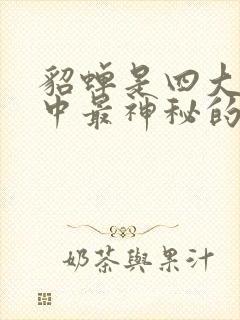 貂蝉是四大
中最神秘的
奶茶與果汁